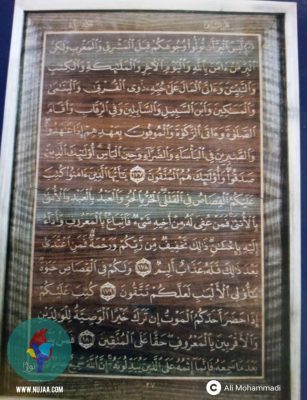 لَّيْسَ ٱلْبِرَّ أَن تُوَلُّوا۟ وُجُوهَكُمْ قِبَلَ ٱلْمَشْرِقِ وَٱلْمَغْرِبِ وَلَٰكِنَّ
ٱلْبِرَّ مَنْ ءَامَنَ بِٱللَّهِ وَٱلْيَوْمِ ٱلْءَاخِرِ وَٱلْمَلَٰٓئِكَةِ وَٱلْكِتَٰبِ
وَٱلنَّبِيِّـۧنَ وَءَاتَى ٱلْمَالَ عَلَىٰ حُبِّهِۦ ذَوِى ٱلْقُرْبَىٰ وَٱلْيَتَٰمَىٰ
وَٱلْمَسَٰكِينَ وَٱبْنَ ٱلسَّبِيلِ وَٱلسَّآئِلِينَ وَفِى ٱلرِّقَابِ وَأَقَامَ
ٱلصَّلَوٰةَ وَءَاتَى ٱلزَّكَوٰةَ وَٱلْمُوفُونَ بِعَهْدِهِمْ إِذَا عَٰهَدُوا۟
وَٱلصَّٰبِرِينَ فِى ٱلْبَأْسَآءِ وَٱلضَّرَّآءِ وَحِينَ ٱلْبَأْسِ أُو۟لَٰٓئِكَ ٱلَّذِينَ
صَدَقُوا۟ وَأُو۟لَٰٓئِكَ هُمُ ٱلْمُتَّقُونَ ١٧٧ يَٰٓأَيُّهَا ٱلَّذِينَ ءَامَنُوا۟ كُتِبَ
عَلَيْكُمُ ٱلْقِصَاصُ فِى ٱلْقَتْلَى ٱلْحُرُّ بِٱلْحُرِّ وَٱلْعَبْدُ بِٱلْعَبْدِ وَٱلْأُنثَىٰ
بِٱلْأُنثَىٰ فَمَنْ عُفِىَ لَهُۥ مِنْ أَخِيهِ شَىْءٌ فَٱتِّبَاعٌۢ بِٱلْمَعْرُوفِ وَأَدَآءٌ
إِلَيْهِ بِإِحْسَٰنٍ ذَٰلِكَ تَخْفِيفٌ مِّن رَّبِّكُمْ وَرَحْمَةٌ فَمَنِ ٱعْتَدَىٰ
بَعْدَ ذَٰلِكَ فَلَهُۥ عَذَابٌ أَلِيمٌ ١٧٨ وَلَكُمْ فِى ٱلْقِصَاصِ حَيَوٰةٌ
يَٰٓأُو۟لِى ٱلْأَلْبَٰبِ لَعَلَّكُمْ تَتَّقُونَ ١٧٩ كُتِبَ عَلَيْكُمْ
إِذَا حَضَرَ أَحَدَكُمُ ٱلْمَوْتُ إِن تَرَكَ خَيْرًا ٱلْوَصِيَّةُ لِلْوَٰلِدَيْنِ
وَٱلْأَقْرَبِينَ بِٱلْمَعْرُوفِ حَقًّا عَلَى ٱلْمُتَّقِينَ ١٨٠ فَمَنۢ
سَمِعَهُۥ فَإِنَّمَآ إِثْمُهُۥ عَلَى ٱلَّذِينَ يُبَدِّلُونَهُۥٓ إِنَّ ٱللَّهَ سَمِيعٌ
٢٧
WWW.NUJAA.COM
C Ali Mohammadi